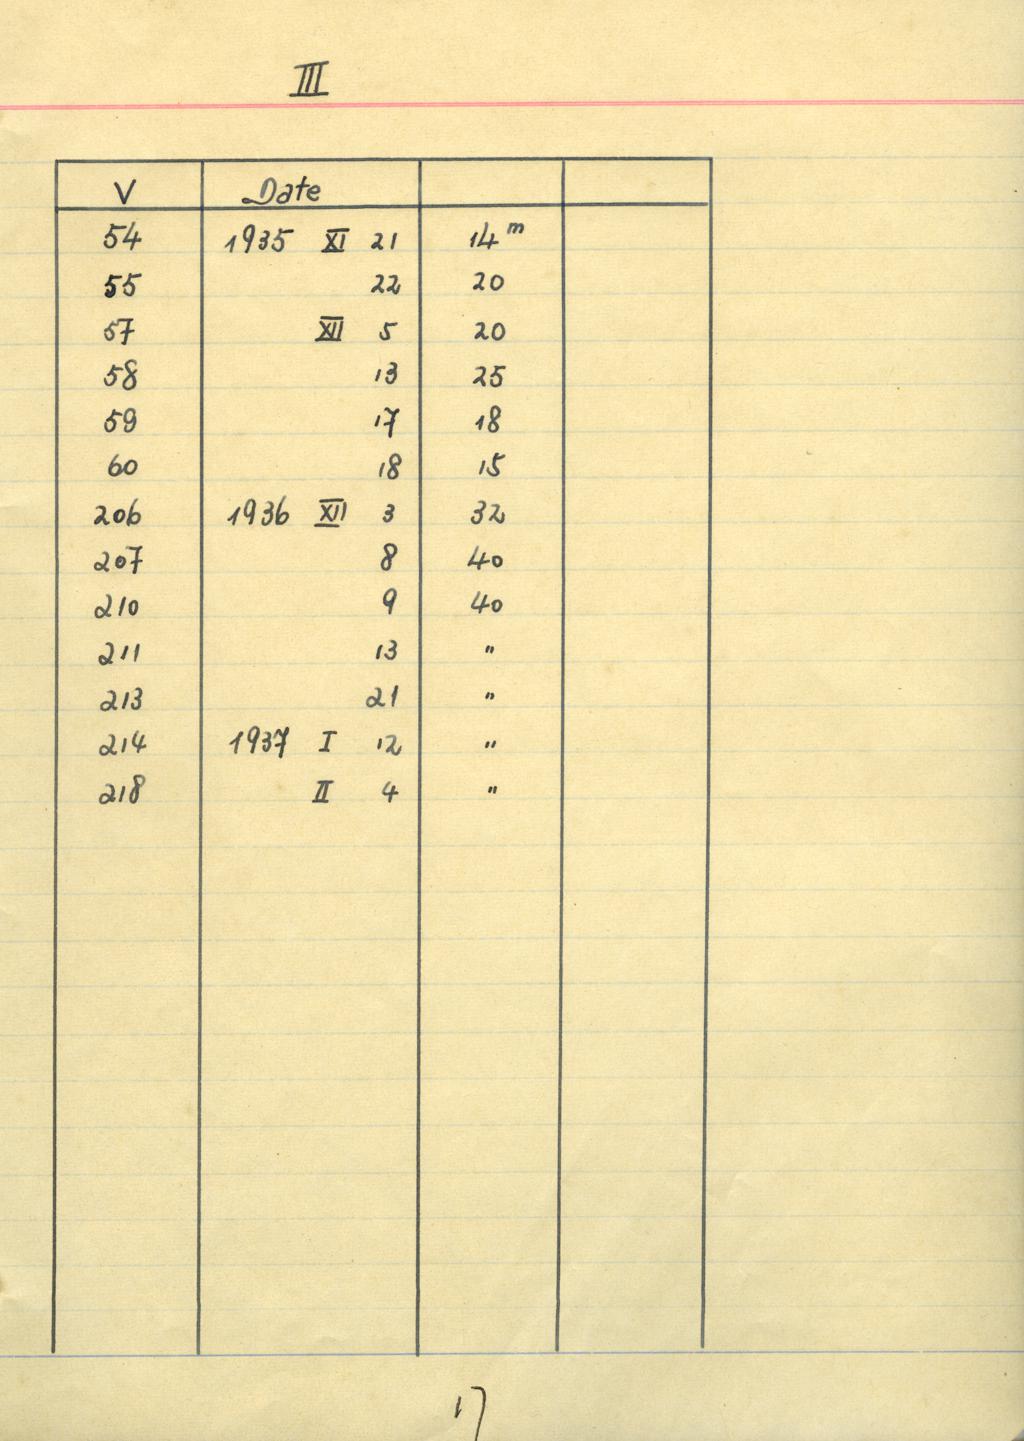 III
V Date
54 1935 XI 21 14 m
55 22 20
57 XII 5 20
58 13 25
59 17 18
60 18 15
206 1936 XII 3 32
207 8 40
210 9 40
211 13 "
213 21 "
214 1937 I 12 "
218 II 4 "
17